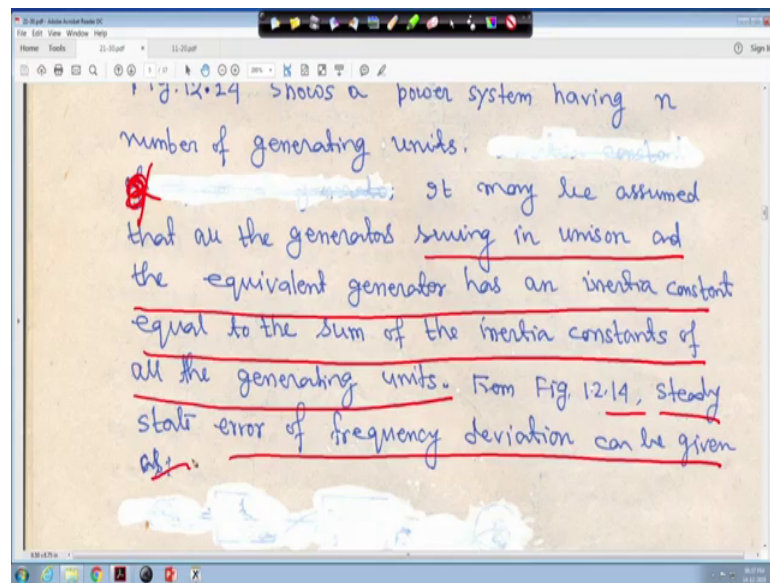 21-30.pdf - Adobe Acrobat Reader DC
File Edit View Window Help
Home Tools 21-30.pdf × 11-20.pdf Sign In
5 / 37
Fig. 12.14 shows a power system having n
number of generating units.
It may be assumed
that all the generators swing in unison ad
the equivalent generator has an inertia constant
equal to the sum of the inertia constants of
all the generating units. From Fig. 12.14, steady
state error of frequency deviation can be given
as: